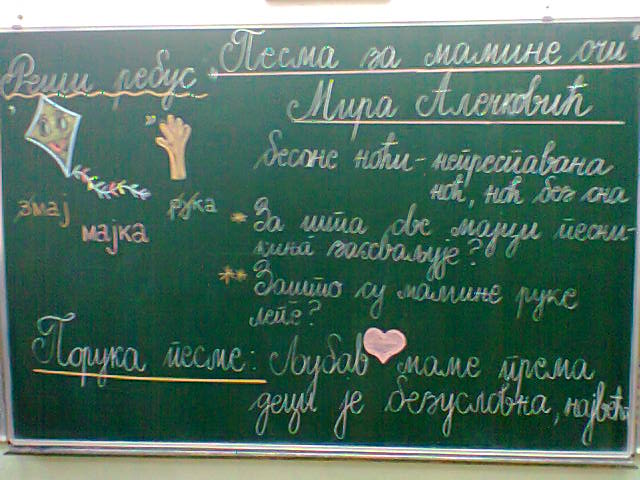 Реши ребус
змај
рука
мајка
Песма за мамине очи
Мира Алечковић
бесане ноћи - непреспавана
ноћ, ноћ без сна
* За шта све мајци песни-
киња захваљује?
** Зашто су мамине руке
лепе?
Порука песме: Љубав маме према
деци је безусловна, највећа